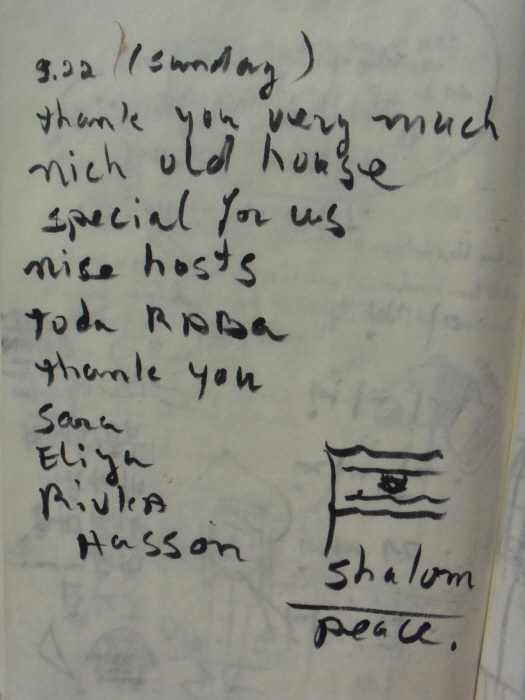 9.22 (sunday)
thank you very much
nich old house
special for us
nise hosts
toda RABa
thank you
Sara
Eliya
RivkA
Hasson
shalom
peace.